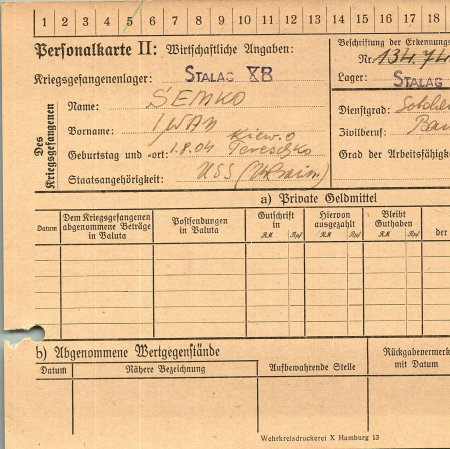 1 2 3 4 5 6 7 8 9 10 11 12 13 14 15 16 17 18
Personalkarte II: Wirtschaftliche Angaben:
Beschriftung der Erkennungs
Nr. 134.74
Kriegsgefangenenlager: STALAG XB
Lager: STALAG
Des Kriegsgefangenen
Name: SEMKO
Vorname: IWAN
Dienstgrad: Soldat
Zivilberuf: Bau
Geburtstag und -ort: 1.9.04 Kiew. O
Grad der Arbeitsfähigk
Staatsangehörigkeit: USS (Ukrain)
a) Private Geldmittel
Datum
Dem Kriegsgefangenen abgenommene Beträge in Valuta
Postsendungen in Valuta
Gutschrift in
RM Rpf
Hiervon ausgezahlt
RM Rpf
Bleibt Guthaben
RM Rpf
der
b) Abgenommene Wertgegenstände
Datum
Nähere Bezeichnung
Aufbewahrende Stelle
Rückgabevermerk mit Datum
Wehrkreisdruckerei X Hamburg 13